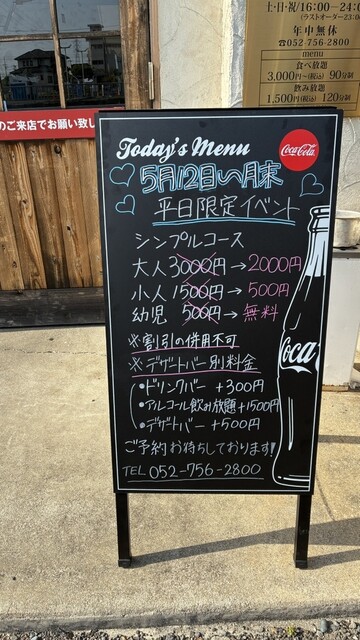 土・日・祝/16:00〜24:0
(ラストオーダー23:0
年中無休
☎052-756-2800
menu
食べ放題
3,000円〜(税込) 90分制
飲み放題
1,500円(税込) 120分制
のご来店でお願い致し
Today's Menu
Coca-Cola
5月12日〜月末
平日限定イベント
シンプルコース
大人3000円→2000円
小人1500円→500円
幼児 500円→無料
※割引の併用不可
※デザートバー別料金
•ドリンクバー +300円
•アルコール飲み放題+1500円
•デザートバー +500円
ご予約お待ちしております!!
TEL 052-756-2800
Coca